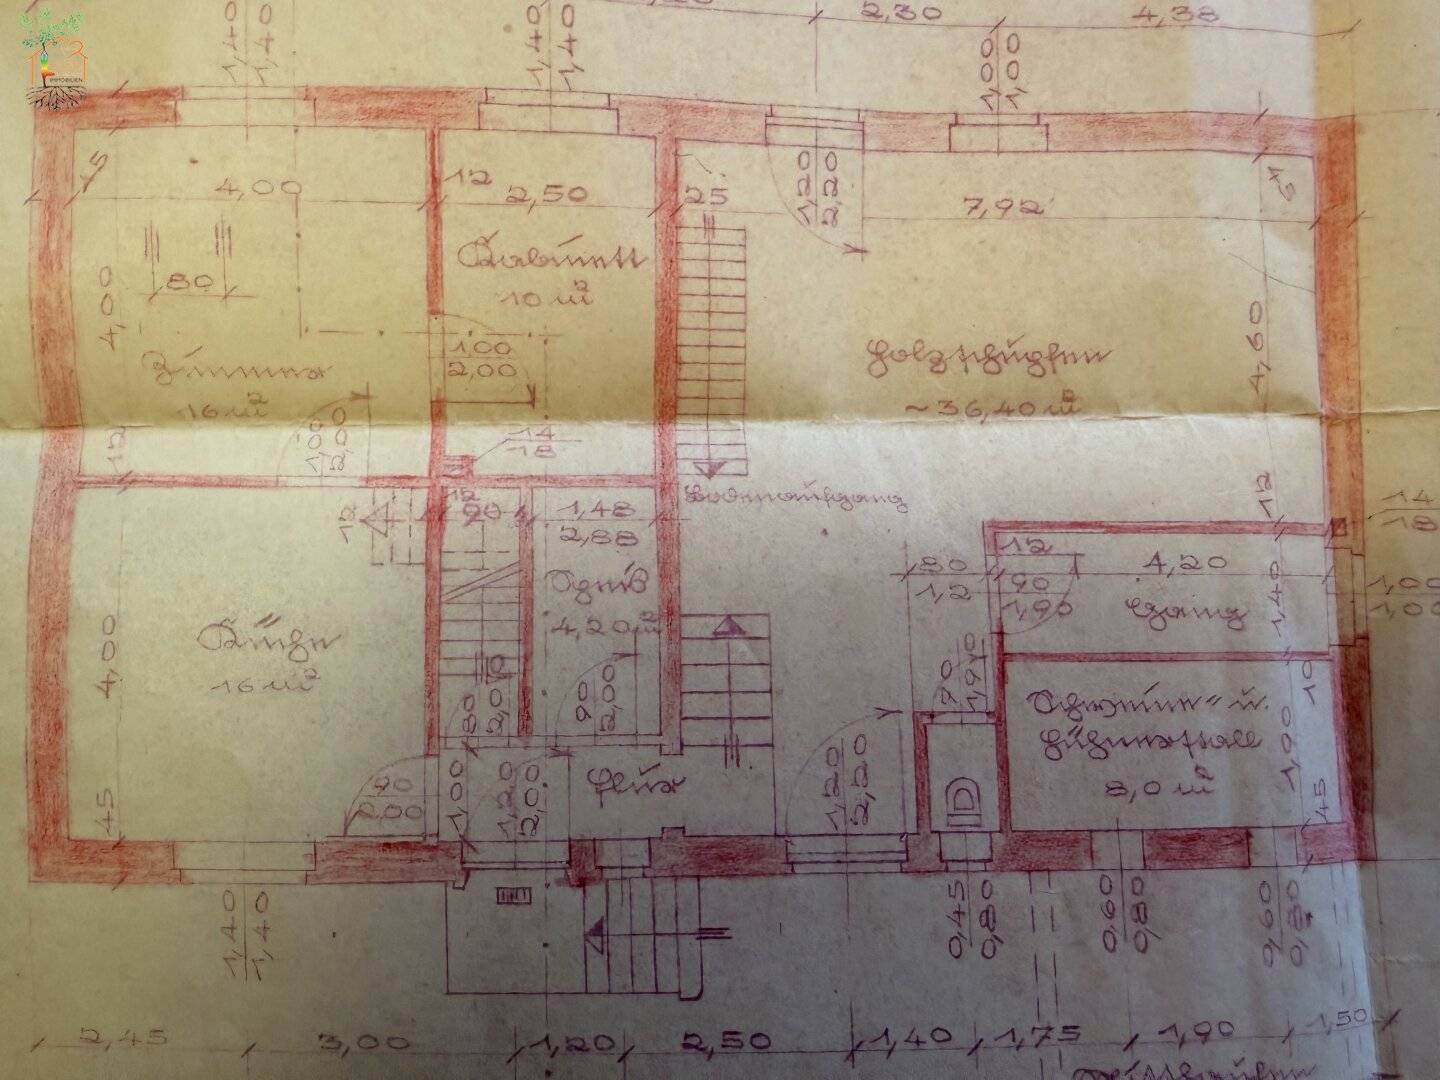 IMMOBILIEN
2,30
4,38
1,40
1,40
1,40
1,40
1,00
1,00
45
4,00
12
2,50
25
1,20
2,20
7,92
45
80
4,00
Kabinett
10 m²
4,60
Zimmer
16 m²
1,00
2,00
1,00
2,00
Holzschupfen
~36,40 m²
12
14
18
Bodenaufgang
12
14
18
12
12
90
1,48
2,88
12
80
1,2
90
1,90
4,20
1,40
1,00
1,00
Speis
4,20 m²
Gang
Küche
16 m²
4,00
80
2,00
90
2,00
70
1,90
10
Schweine- u.
Hühnerstall
8,0 m²
1,90
45
45
90
2,00
1,00
1,20
2,00
Flur
1,20
2,20
1,40
1,40
0,45
0,80
0,60
0,80
0,60
0,80
2,45
3,00
1,20
2,50
1,40
1,75
1,90
1,50